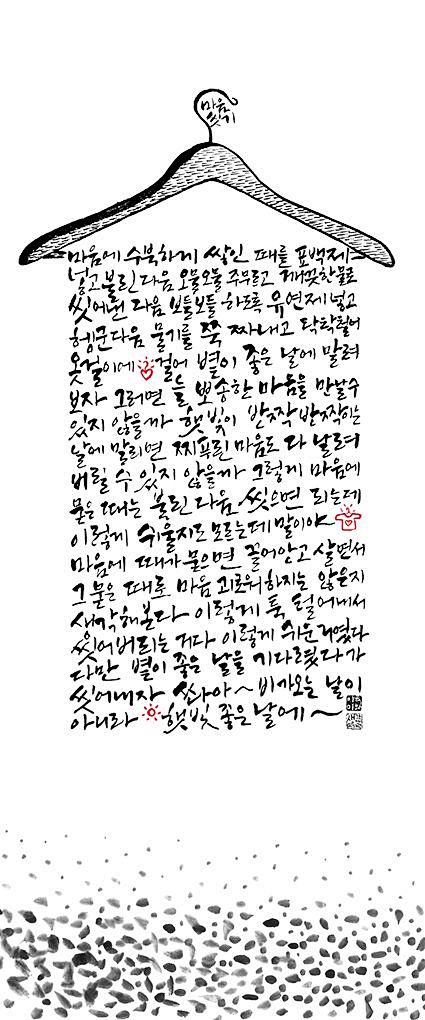 마음
씻기
마음에 수북하게 쌓인 때를 표백제
넣고 불린 다음 오물오물 주무르고 깨끗한 물로
씻어낸 다음 보들보들 하도록 유연제 넣고
헹군다음 물기를 쭉 짜내고 탁탁 털어
옷걸이에 걸어 볕이 좋은 날에 말려
보자 그러면 늘 뽀송한 마음을 만날 수
있지 않을까 햇빛이 반짝 반짝이는
날에 말리면 찌푸린 마음도 다 날려
버릴 수 있지 않을까 그렇게 마음에
묻은 때는 불린 다음 씻으면 되는데
이렇게 쉬울지도 모르는데 말이야
마음에 때가 묻으면 끌어안고 살면서
그 붙은 때로 마음 괴로워하지는 않은지
생각해본다 이렇게 툭 털어내서
씻어버리는 거다 이렇게 쉬운거였다
다만 볕이 좋은 날을 기다렸다가
씻어내자 쏴아~ 비가오는 날이
아니라 햇빛 좋은 날에~